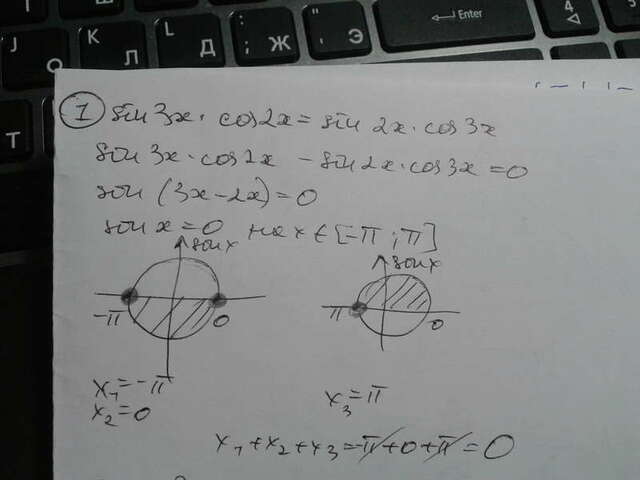 J
K
L
: ;
Enter
4
О
Л
Д
Ж
Э
Т
1 sin 3x · cos 2x = sin 2x · cos 3x
sin 3x · cos 2x - sin 2x · cos 3x = 0
sin (3x - 2x) = 0
sin x = 0 на x ∈ [-π ; π]
sin x
sin x
-π 0
π 0
x₁ = -π
x₂ = 0
x₃ = π
x₁ + x₂ + x₃ = -π + 0 + π = 0